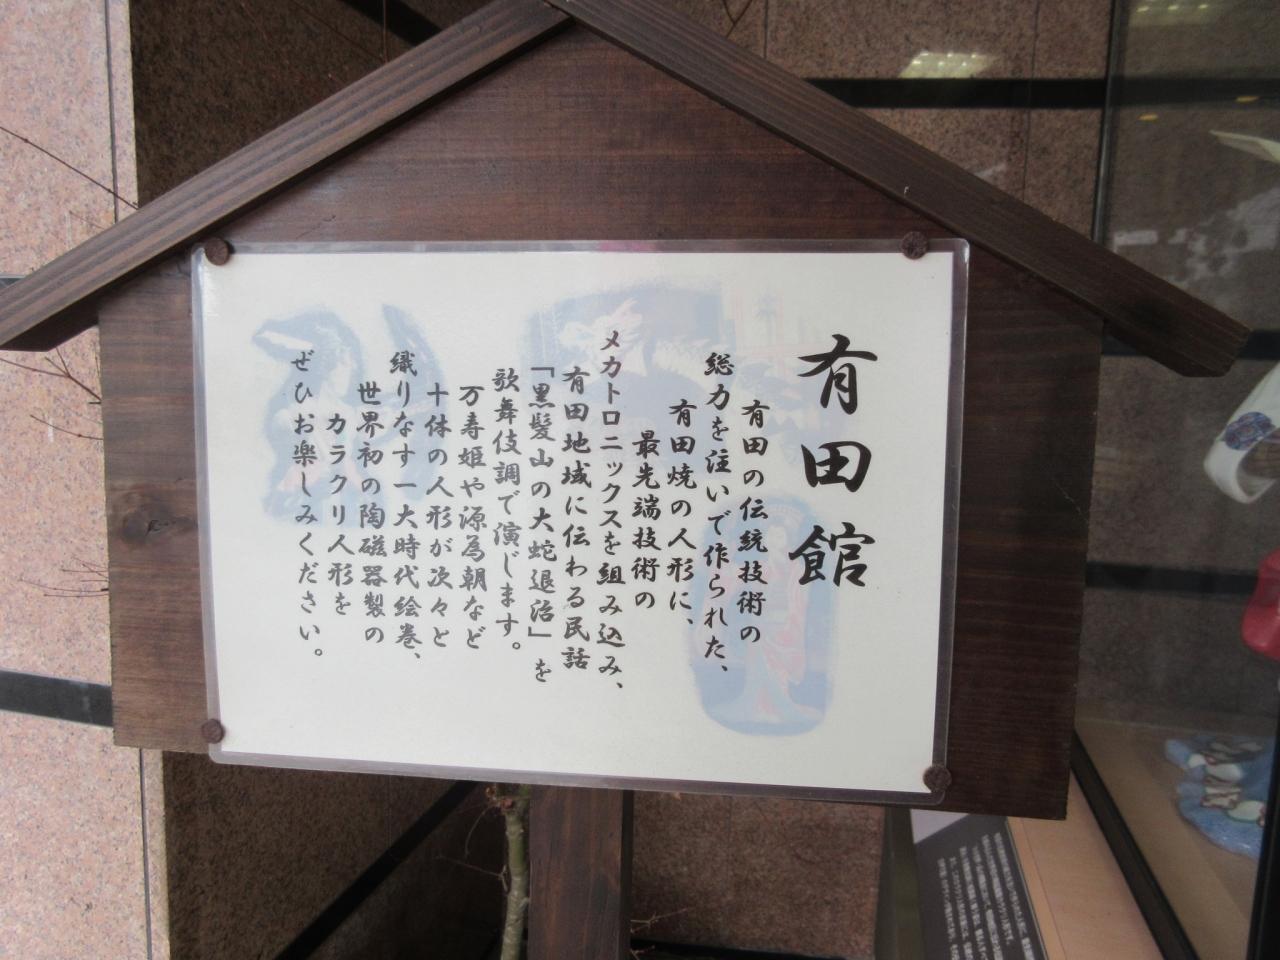 有田館
有田の伝統技術の
総力を注いで作られた、
有田焼の人形に、
最先端技術の
メカトロニックスを組み込み、
有田地域に伝わる民話
「黒髪山の大蛇退治」を
歌舞伎調で演じます。
万寿姫や源為朝など
十体の人形が次々と
織りなす一大時代絵巻、
世界初の陶磁器製の
カラクリ人形を
ぜひお楽しみください。